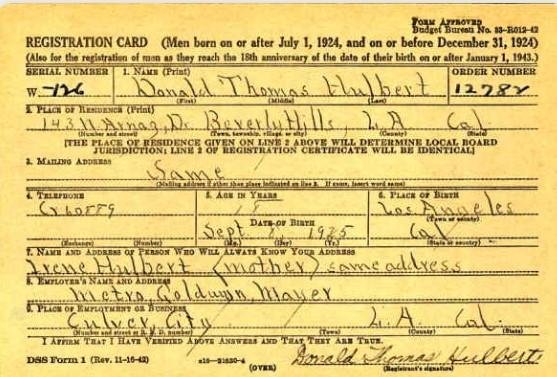 FORM APPROVED
Budget Bureau No. 33-R012-42
REGISTRATION CARD (Men born on or after July 1, 1924, and on or before December 31, 1924)
(Also for the registration of men as they reach the 18th anniversary of the date of their birth on or after January 1, 1943.)
SERIAL NUMBER 1. NAME (Print) ORDER NUMBER
W-126 Donald Thomas Hulbert 12782
(First) (Middle) (Last)
2. PLACE OF RESIDENCE (Print)
143 N Arnaz Dr Beverly Hills, L A Cal
(Number and street) (Town, township, village, or city) (County) (State)
[THE PLACE OF RESIDENCE GIVEN ON LINE 2 ABOVE WILL DETERMINE LOCAL BOARD
JURISDICTION; LINE 2 OF REGISTRATION CERTIFICATE WILL BE IDENTICAL]
3. MAILING ADDRESS
Same
(Mailing address if other than place indicated on line 2. If same, insert word same)
4. TELEPHONE 5. AGE IN YEARS 6. PLACE OF BIRTH
18 Los Angeles
DATE OF BIRTH (Town or county)
Sept. 1925 Cal
(Exchange) (Number) (Mo.) (Day) (Yr.) (State or country)
7. NAME AND ADDRESS OF PERSON WHO WILL ALWAYS KNOW YOUR ADDRESS
Irene Hulbert (mother) same address
8. EMPLOYER'S NAME AND ADDRESS
Metro, Goldwyn, Mayer
9. PLACE OF EMPLOYMENT OR BUSINESS
Culver City L. A. Cal.
(Number and street or R. F. D. number) (Town) (County) (State)
I AFFIRM THAT I HAVE VERIFIED ABOVE ANSWERS AND THAT THEY ARE TRUE.
DSS Form 1 (Rev. 11-16-42) (OVER) Donald Thomas Hulbert
(Registrant's signature)